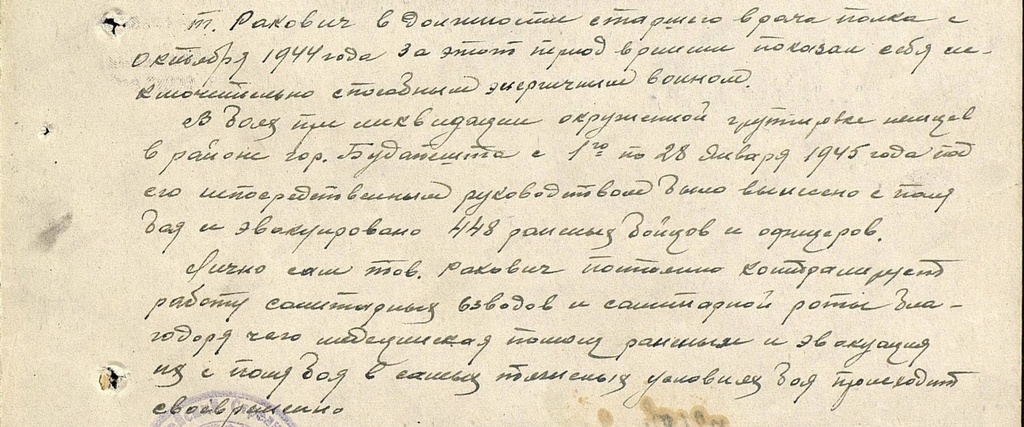 т. Ракович в должности старшего врача полка с
октября 1944 года За этот период времени показал себя ис-
ключительно способным энергичным воином.
В боях при ликвидации окруженной группировке немцев
в районе гор. Будапешта с 1го по 28 января 1945 года под
его непосредственным руководством было вынесено с поля
боя и эвакуировано 448 раненых бойцов и офицеров.
Лично сам тов. Ракович постоянно контролирует
работу санитарных взводов и санитарной роты бла-
годоря чего медицинская помощь раненым и эвакуация
их с поля боя в самых тяжелых условиях боя происходит
своевременно